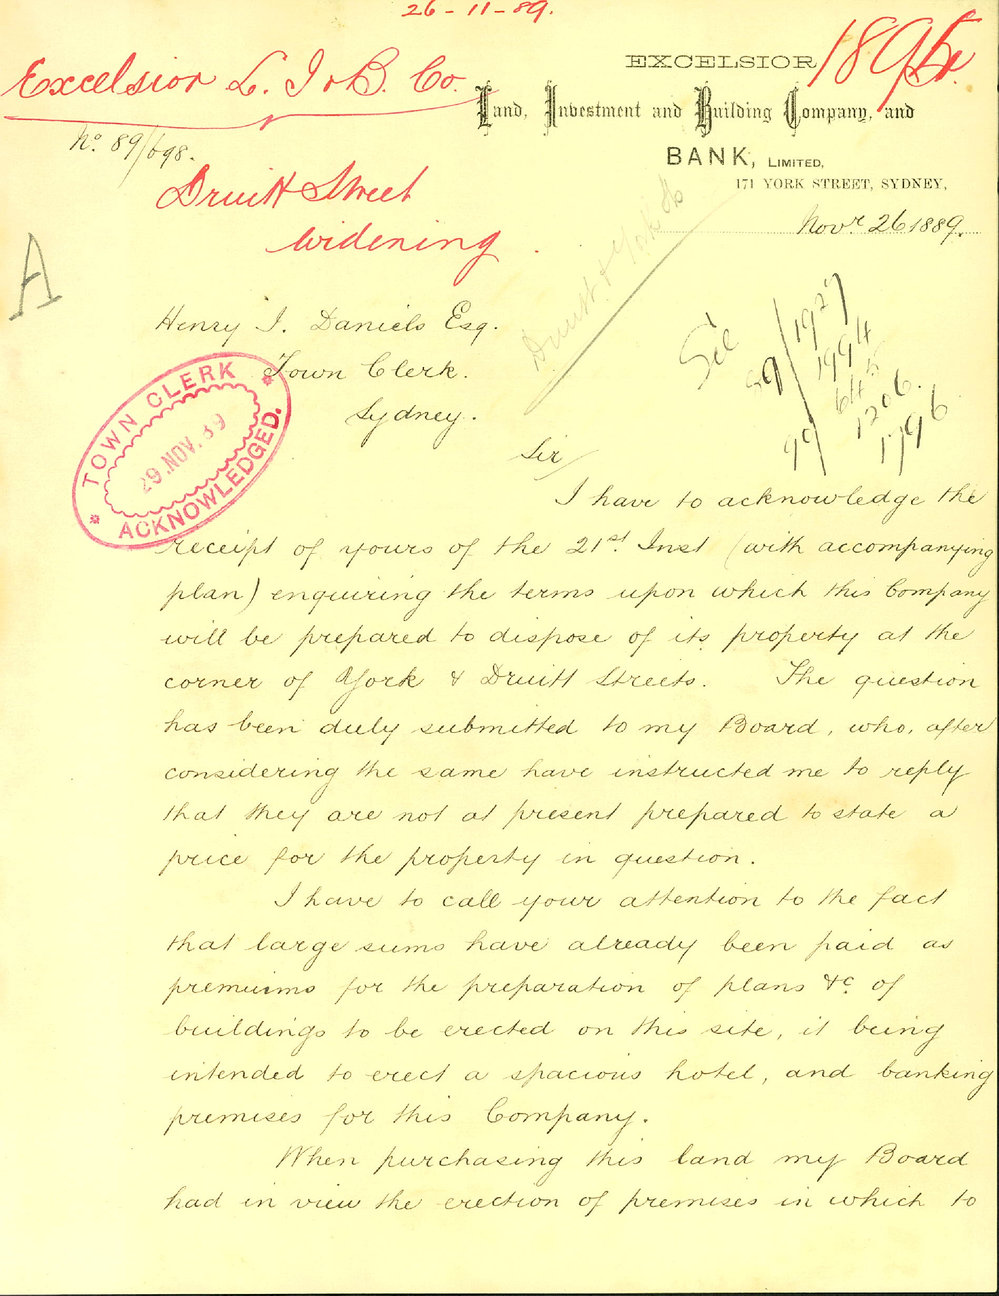 26-11-89.
Excelsior L. I & B. Co.
No. 89/698.
Druitt Street
widening.
A
EXCELSIOR
Land, Investment and Building Company, and
BANK, LIMITED,
171 YORK STREET, SYDNEY,
Novr 26 1889.
Druitt & York Sts
See
89/1927
1994
645
1206.
99/1796
Henry J. Daniels Esq.
Town Clerk.
Sydney.
TOWN CLERK
29 NOV. 89
ACKNOWLEDGED.
Sir/
I have to acknowledge the
receipt of yours of the 21st Inst (with accompanying
plan) enquiring the terms upon which this Company
will be prepared to dispose of its property at the
corner of York & Druitt Streets. The question
has been duly submitted to my Board, who, after
considering the same have instructed me to reply
that they are not at present prepared to state a
price for the property in question.
I have to call your attention to the fact
that large sums have already been paid as
premiums for the preparation of plans &c. of
buildings to be erected on this site, it being
intended to erect a spacious hotel, and banking
premises for this Company.
When purchasing this land my Board
had in view the erection of premises in which to